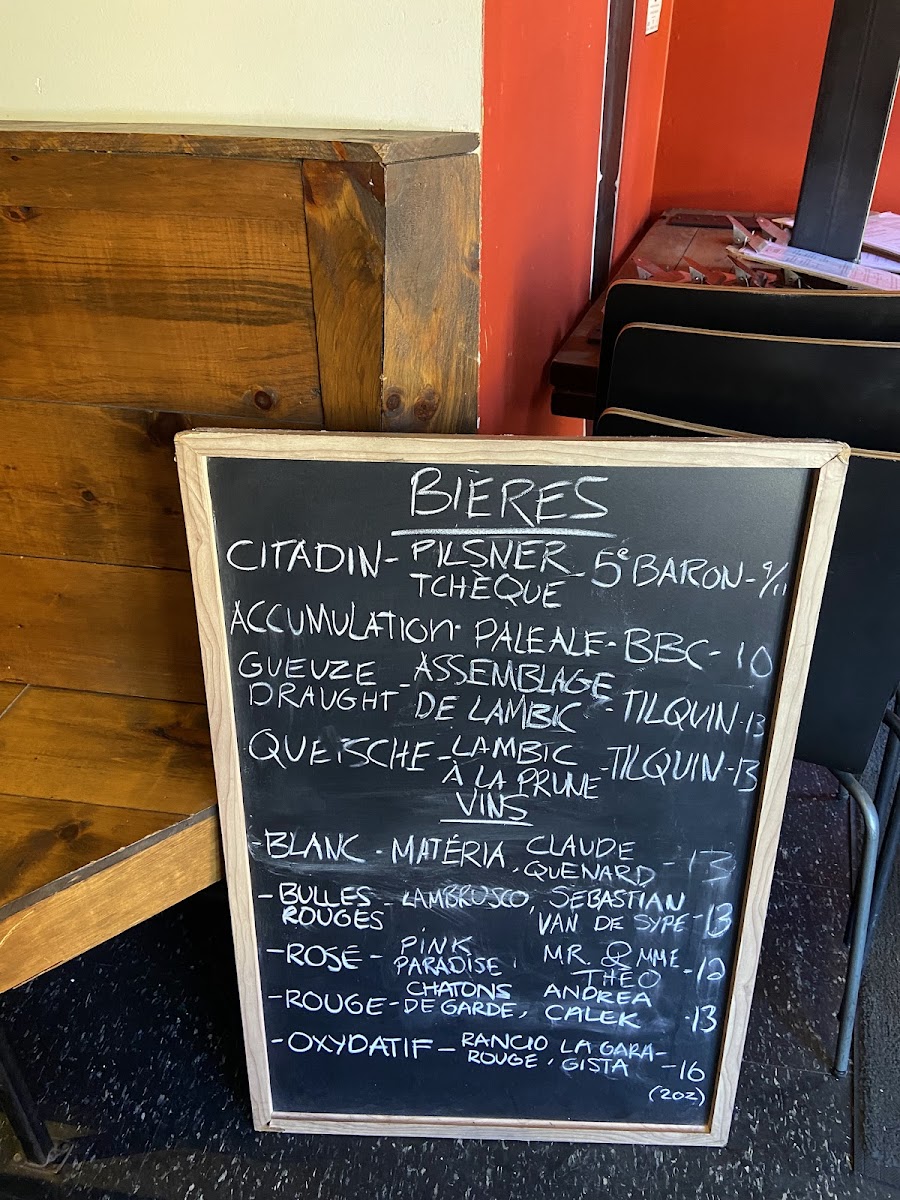 BIÈRES
CITADIN - PILSNER TCHÈQUE - 5e BARON - 9/11
ACCUMULATION - PALE ALE - BBC - 10
GUEUZE DRAUGHT - ASSEMBLAGE DE LAMBIC - TILQUIN - 13
QUETSCHE - LAMBIC À LA PRUNE - TILQUIN - 13
VINS
- BLANC - MATÉRIA, CLAUDE QUENARD - 13
- BULLES ROUGES - LAMBRUSCO, SEBASTIAN VAN DE SYPE - 13
- ROSÉ - PINK PARADISE, MR. & MME THÉO - 12
- ROUGE - CHATONS DE GARDE, ANDREA CALEK - 13
- OXYDATIF - RANCIO ROUGE, LA GARAGISTA - 16
(2OZ)